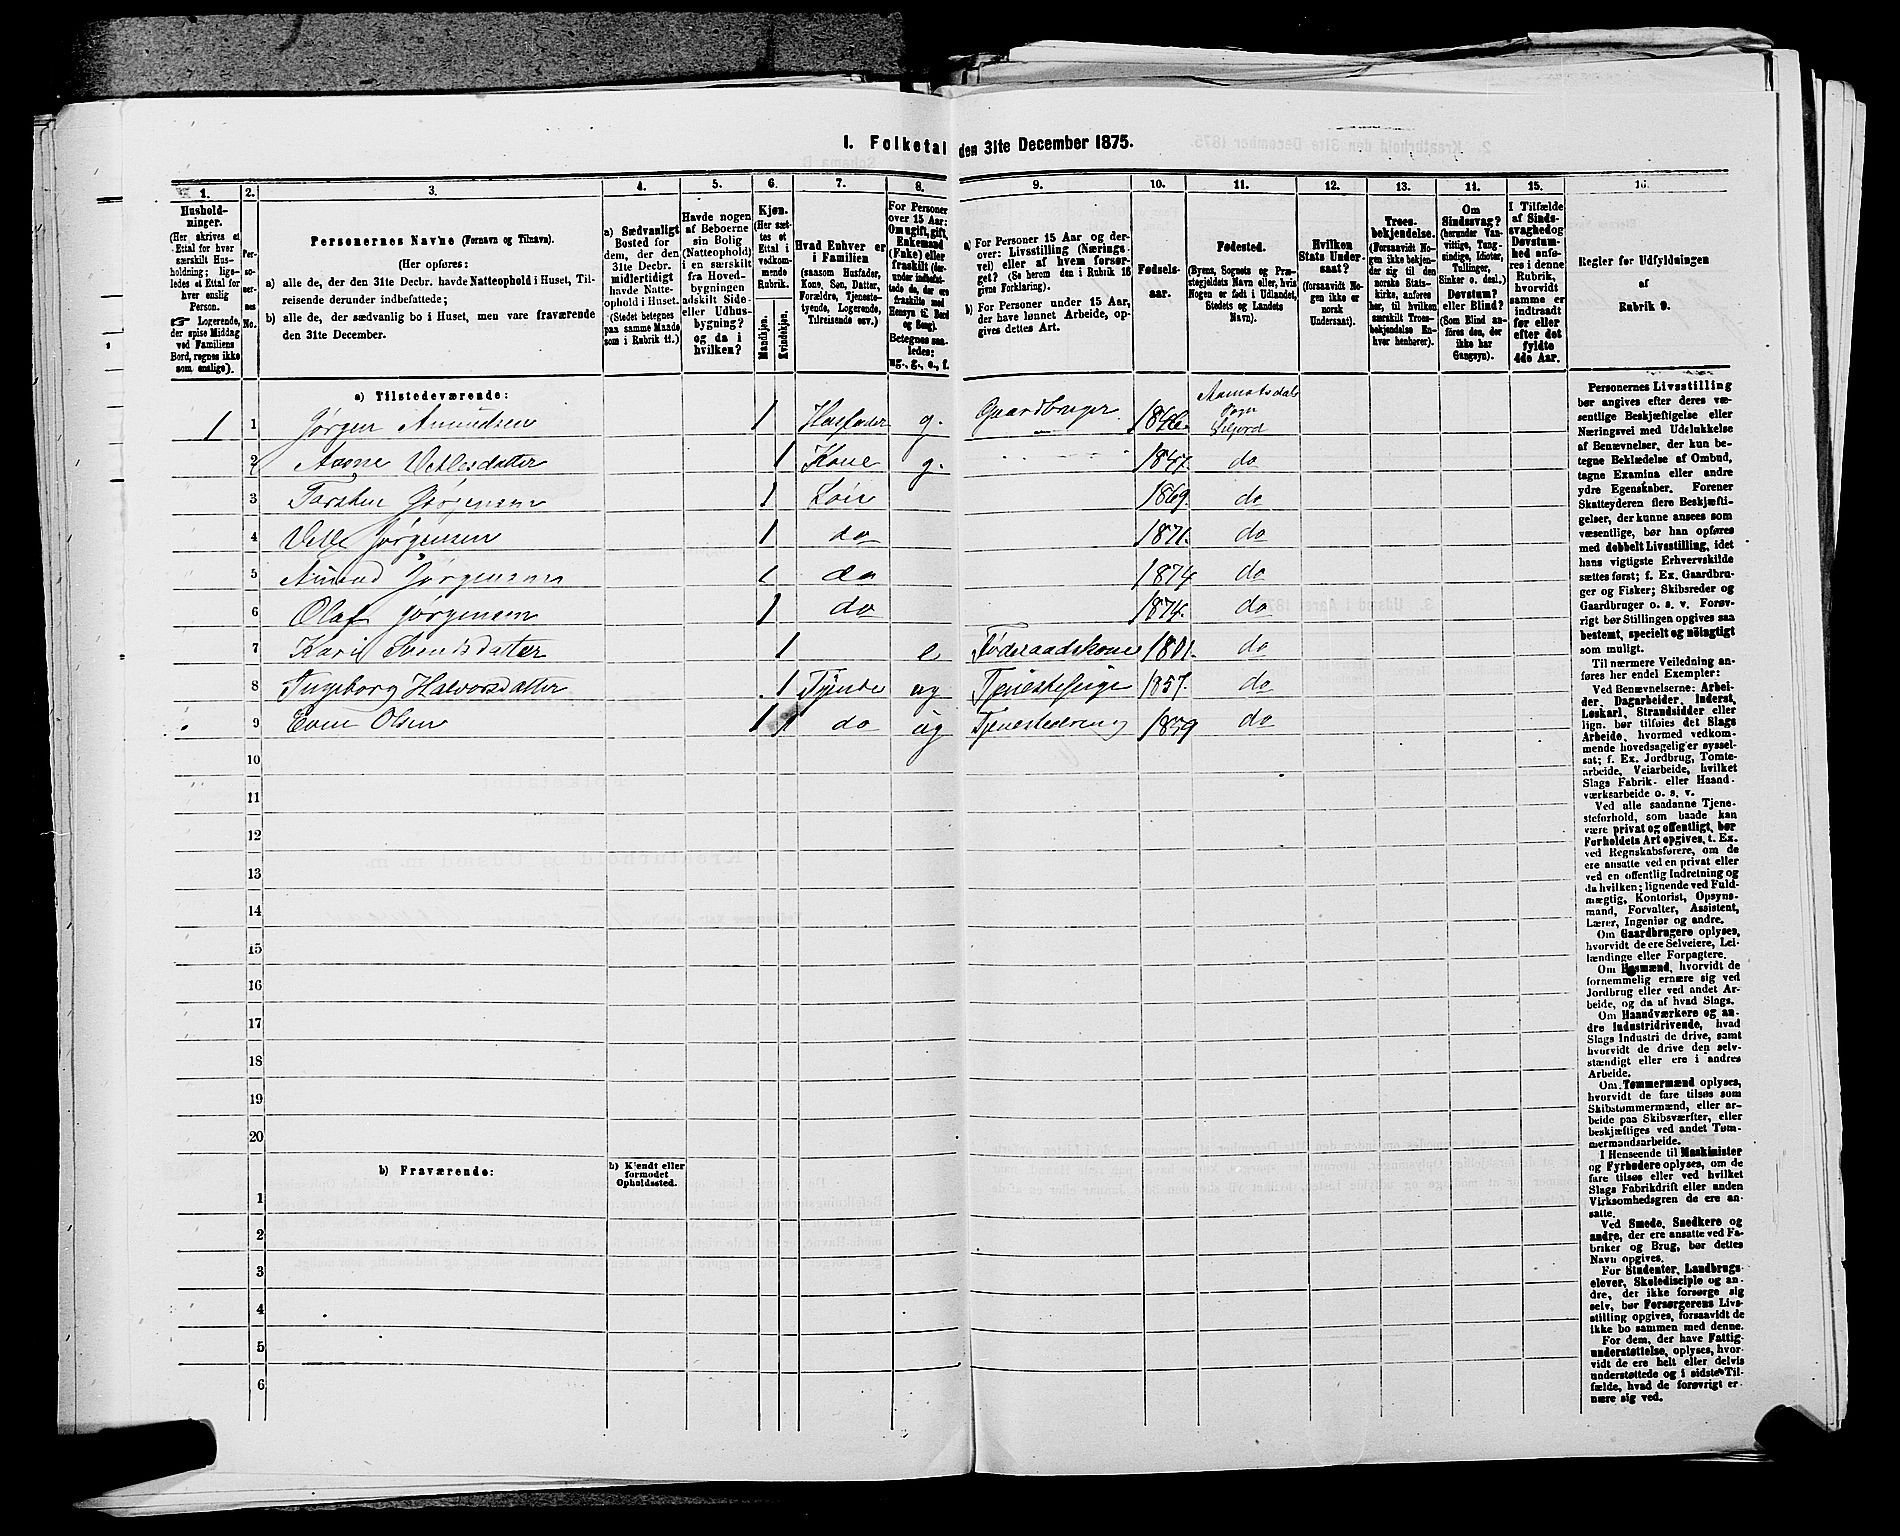 1. Folketal den 31te December 1875.
1. 2. 3. 4. 5. 6. 7. 8. 9. 10. 11. 12. 13. 14. 15. 16.
Hushold-
ninger.
(Her skrives et
Ettal for hver
særskilt Hus-
holdning; lige-
ledes et Ettal for
hver enslig
Person.
Logerende,
der spise Middag
ved Familiens
Bord, regnes ikke
som enslige).
Per-
so-
ner-
nes
No.
Personernes Navne (Fornavn og Tilnavn).
(Her opføres:
a) alle de, der den 31te Decbr. havde Natteophold i Huset, Til-
reisende derunder indbefattede;
b) alle de, der sædvanlig bo i Huset, men vare fraværende
den 31te December.
a) Sædvanligt
Bosted for
dem, der den
31te Decbr.
midlertidigt
havde Natte-
ophold i Huset.
(Stedet betegnes
paa samme Maade
som i Rubrik 11.)
Havde nogen
af Beboerne
sin Bolig
(Natteophold)
i en særskilt
fra Hoved-
bygningen
adskilt Side-
eller Udhus-
bygning?
og da i
hvilken?
Kjøn.
(Her sæt-
tes et
Ettal i
vedkom-
mende
Rubrik.
Mandkjøn.
Kvindekjøn.
Hvad Enhver er
i Familien
(saasom Husfader,
Kone, Søn, Datter,
Forældre, Tjeneste-
tyende, Logerende,
Tilreisende osv.)
For Personer
over 15 Aar:
Om ugift, gift,
Enkemand
(Enke) eller
fraskilt (der-
under indbefat-
tede de, der ere
fraskilte med
Hensyn til Bord
og Seng).
Betegnes saa-
ledes:
ug., g., e., f.
a) For Personer 15 Aar og der-
over: Livsstilling (Nærings-
vei) eller af hvem forsør-
get? (Se herom den i Rubrik 16
givne Forklaring).
b) For Personer under 15 Aar,
der have lønnet Arbeide, op-
gives dettes Art.
Fødsels-
aar.
Fødested.
(Byens, Sognets og Præ-
stegjeldets Navn eller, hvis
Nogen er født i Udlandet,
Stedets og Landets
Navn).
Hvilken
Stats Under-
saat?
(forsaavidt No-
gen ikke er
norsk
Undersaat).
Troes-
bekjendelse.
(Forsaavidt No-
gen ikke bekjen-
der sig til den
norske Stats-
kirke, anføres
her, til hvilken
særskilt Troes-
bekjendelse En-
hver henhører).
Om
Sindssvag?
(herunder Van-
vittige, Tung-
sindige, Idioter,
Tullinger,
Sinker o. desl.)
Døvstum?
eller Blind?
(Som Blind an-
føres den, der
ikke har
Gangsyn).
I Tilfælde
af Sinds-
svaghed og
Døvstum-
hed anfø-
res i denne
Rubrik,
hvorvidt
samme er
indtraadt
før eller
efter det
fyldte
4de Aar.
Regler for Udfyldningen
af
Rubrik 9.
a) Tilstedeværende:
1 1 Jørgen Amundsen 1 Husfader g. Gaardbruger 1846. Aamotsdals Sogn Siljord
2 Aasne Vetlesdatter 1 Kone g. 1847. do
3 Torsten Jørgensen 1 Søn 1869. do
4 Vetle Jørgensen 1 do 1871. do
5 Amund Jørgensen 1 do 1874 do
6 Olaf Jørgensen 1 do 1874. do
7 Kari Svendsdatter 1 e Føderaadskone 1801. do
8 Ingeborg Halvorsdatter 1 Tyende ug Tjenestepige 1857. do
9 Even Olsen 1 1 do ug Tjenestedreng 1859 do
10
11
12
13
14
15
16
17
18
19
20
b) Fraværende:
b) Kjendt eller
formodet
Opholdssted.
1
2
3
4
5
6
Personernes Livsstilling
bør angives efter deres væ-
sentlige Beskjæftigelse eller
Næringsvei med Udelukkelse
af Benævnelser, der kun be-
tegne Beklædelse af Ombud,
tagne Examina eller andre
ydre Egenskaber. Forener
Skatteyderen flere Beskjæfti-
gelser, der kunne ansees som
væsentlige, bør han opføres
med dobbelt Livsstilling, idet
hans vigtigste Erhvervskilde
sættes først; f. Ex. Gaardbru-
ger og Fisker; Skibsreder og
Gaardbruger o. s. v. Forøv-
rigt bør Stillingen opgives saa
bestemt, specielt og nøiagtigt
som muligt.
Til nærmere Veiledning an-
føres her endel Exempler:
Ved Benævnelserne: Arbei-
der, Dagarbeider, Inderst,
Løskarl, Strandsidder eller
lign. bør tilføies det Slags
Arbeide, hvormed vedkom-
mende hovedsagelig er syssel-
sat; f. Ex. Jordbrug, Tomte-
arbeide, Veiarbeide, hvilket
Slags Fabrik- eller Haand-
værksarbeide o. s. v.
Ved alle saadanne Tjene-
steforhold, som baade kan
være privat og offentligt, bør
Forholdets Art opgives, t. Ex.
ved Regnskabsførere, om de
ere ansatte ved en privat eller
ved en offentlig Indretning og
da hvilken; lignende ved Fuld-
mægtig, Kontorist, Opsyns-
mand, Forvalter, Assistent,
Lærer, Ingeniør og andre.
Om Gaardbrugere oplyses,
hvorvidt de ere Selveiere, Lei-
lændinge eller Forpagtere.
Om Husmænd, hvorvidt de
fornemmelig ernære sig ved
Jordbrug eller ved andet Ar-
beide, og da af hvad Slags.
Om Haandværkere og an-
dre Industridrivende, hvad
Slags Industri de drive, samt
hvorvidt de drive den selv-
stændigt eller ere i andres
Arbeide.
Om Tømmermænd oplyses,
hvorvidt de fare tilsøs som
Skibstømmermænd, eller ar-
beide paa Skibsværfter, eller
beskjæftiges ved andet Tøm-
mermandsarbeide.
I Henseende til Maskinister
og Fyrbødere oplyses, om de
fare tilsøs eller ved hvilket
Slags Fabrikdrift eller anden
Virksomhedsgren de ere an-
satte.
Ved Smede, Snedkere og
andre, der ere ansatte ved Fa-
briker og Brug, bør dettes
Navn opgives.
For Studenter, Landbrugs-
elever, Skoledisciple og an-
dre, der ikke forsørge sig
selv, bør Forsørgerens Livs-
stilling opgives, forsaavidt de
ikke bo sammen med denne.
For dem, der have Fattig-
understøttelse, oplyses, hvor-
vidt de ere helt eller delvis
understøttede og i sidste Til-
fælde, hvad de forøvrigt er-
nære sig ved.